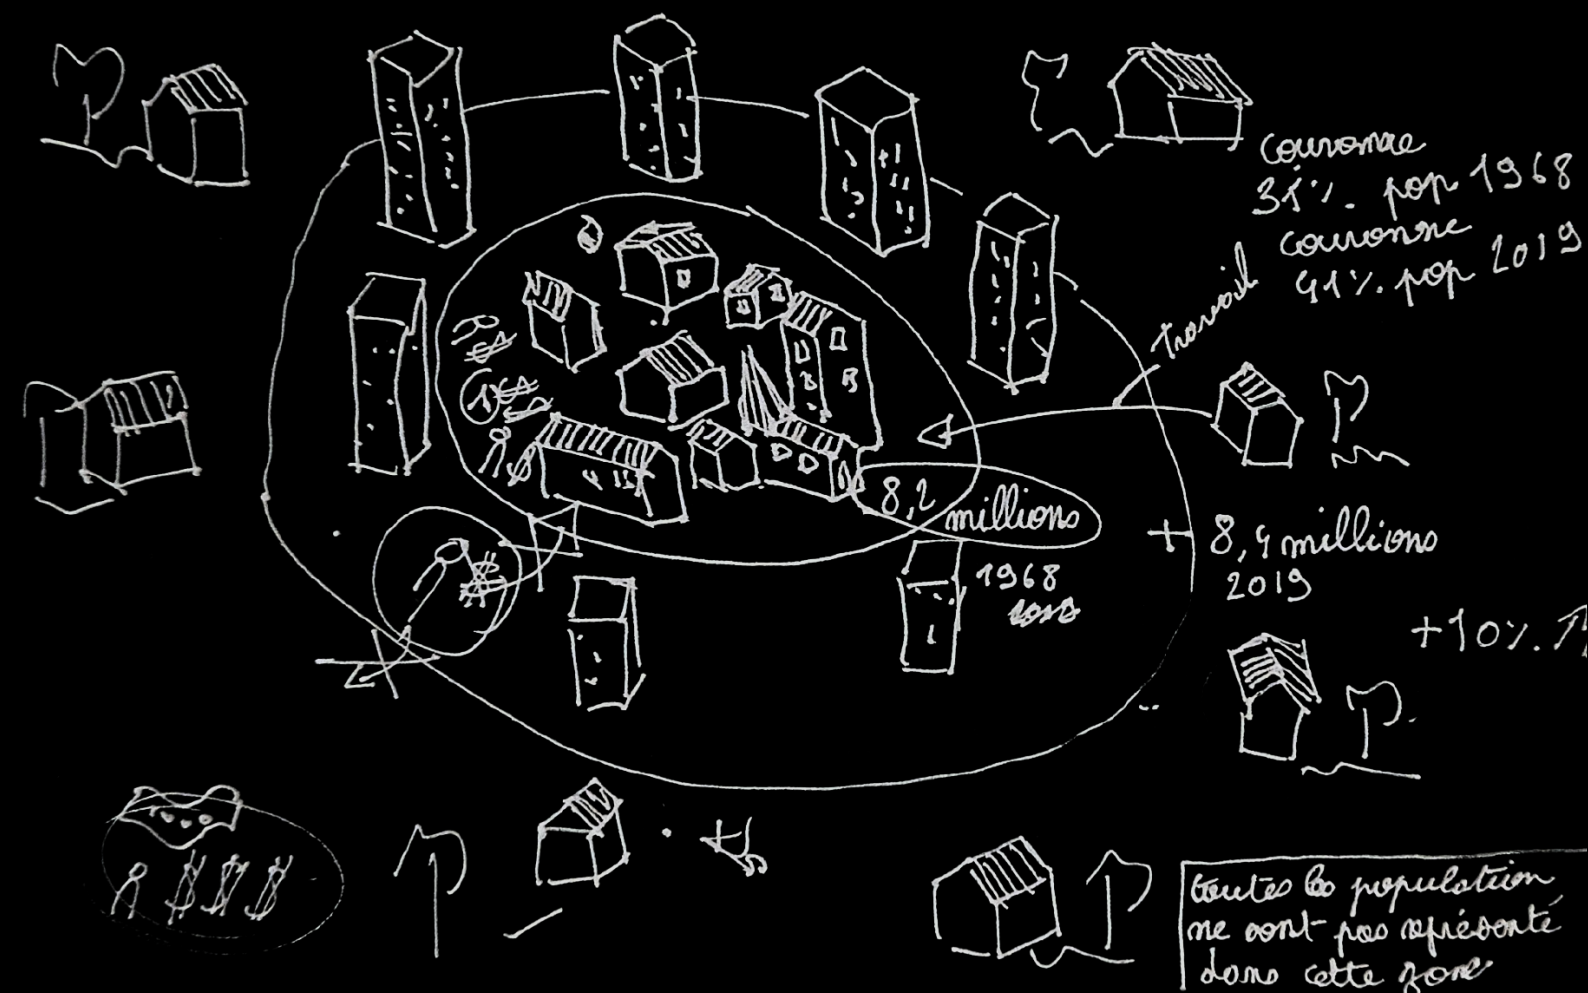 couronne
31%. pop 1968
couronne
41%. pop 2019
travail
8,2 millions
1968
+ 8,4 millions
2019
+10%.
$
$$$
toutes les population
ne sont pas représenté
dans cette zone